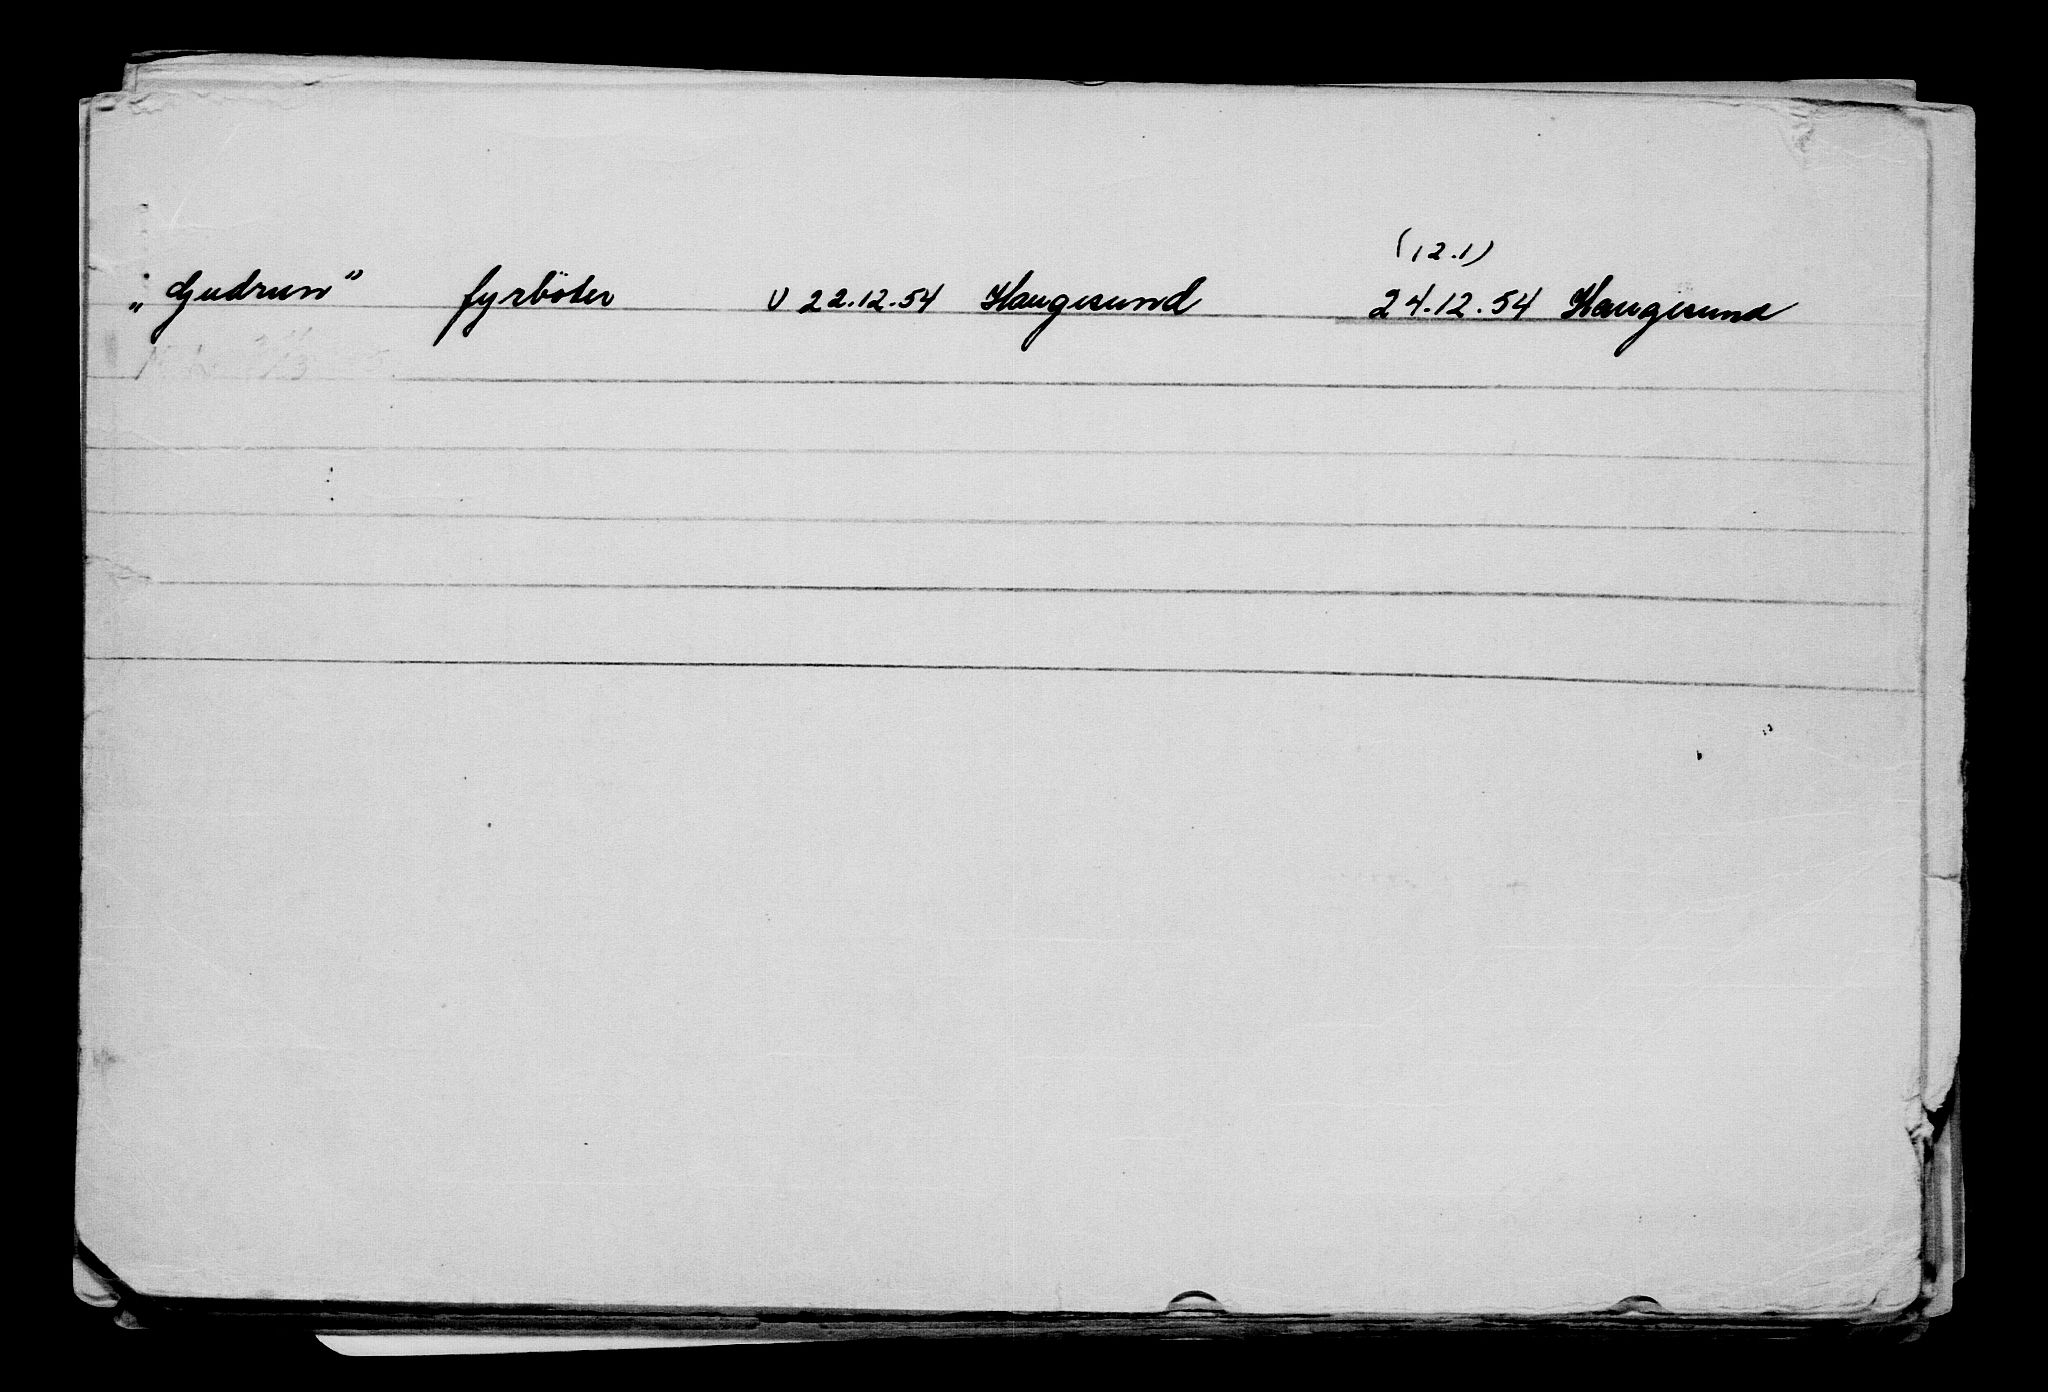 (12.1)
„Gudrun" fyrböter v 22.12.54 Haugesund 24.12.54 Haugesund